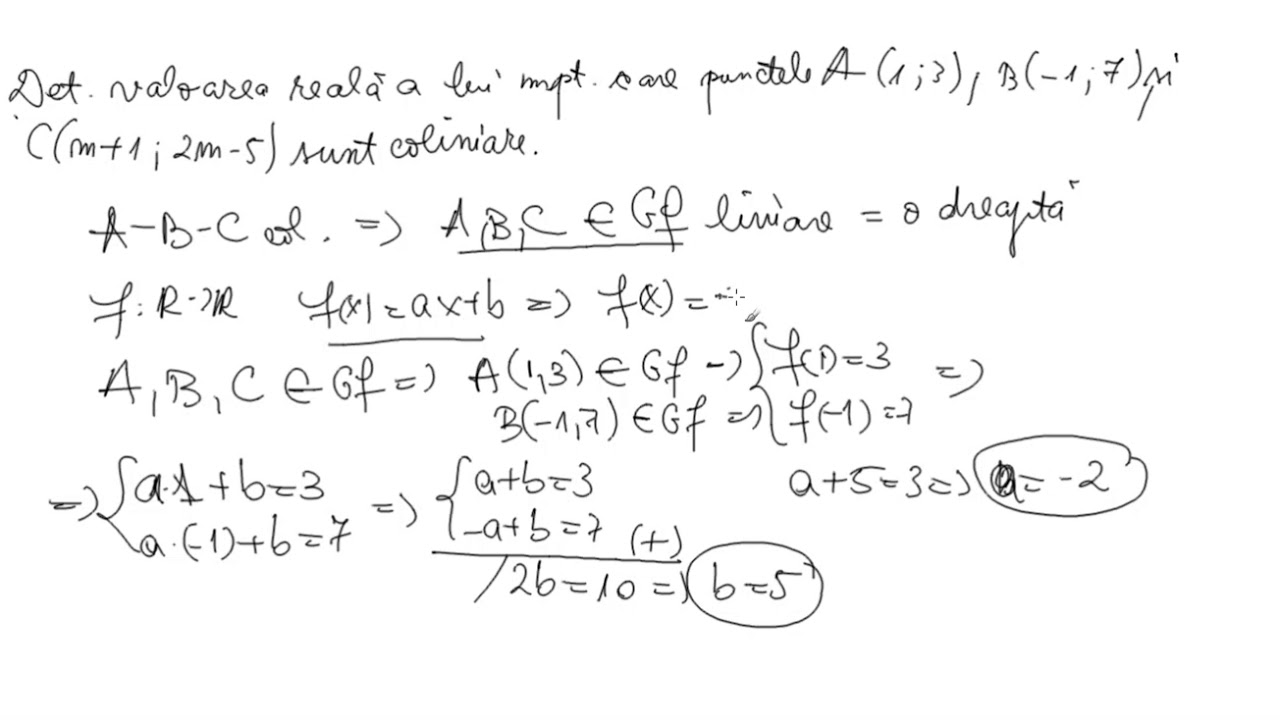 Det. valoarea reală a lui m pt. care punctele A(1;3), B(-1;7) și
C(m+1; 2m-5) sunt coliniare.
A-B-C col. => A,B,C ∈ Gf liniare = o dreaptă
f: R->R f(x)=ax+b => f(x)=-
A,B,C ∈ Gf => A(1,3) ∈ Gf -> { f(1)=3 =>
B(-1,7) ∈ Gf => { f(-1)=7
=> { a·1+b=3 => { a+b=3 a+5=3 => a=-2
a·(-1)+b=7 -a+b=7 (+)
/ 2b=10 => b=5